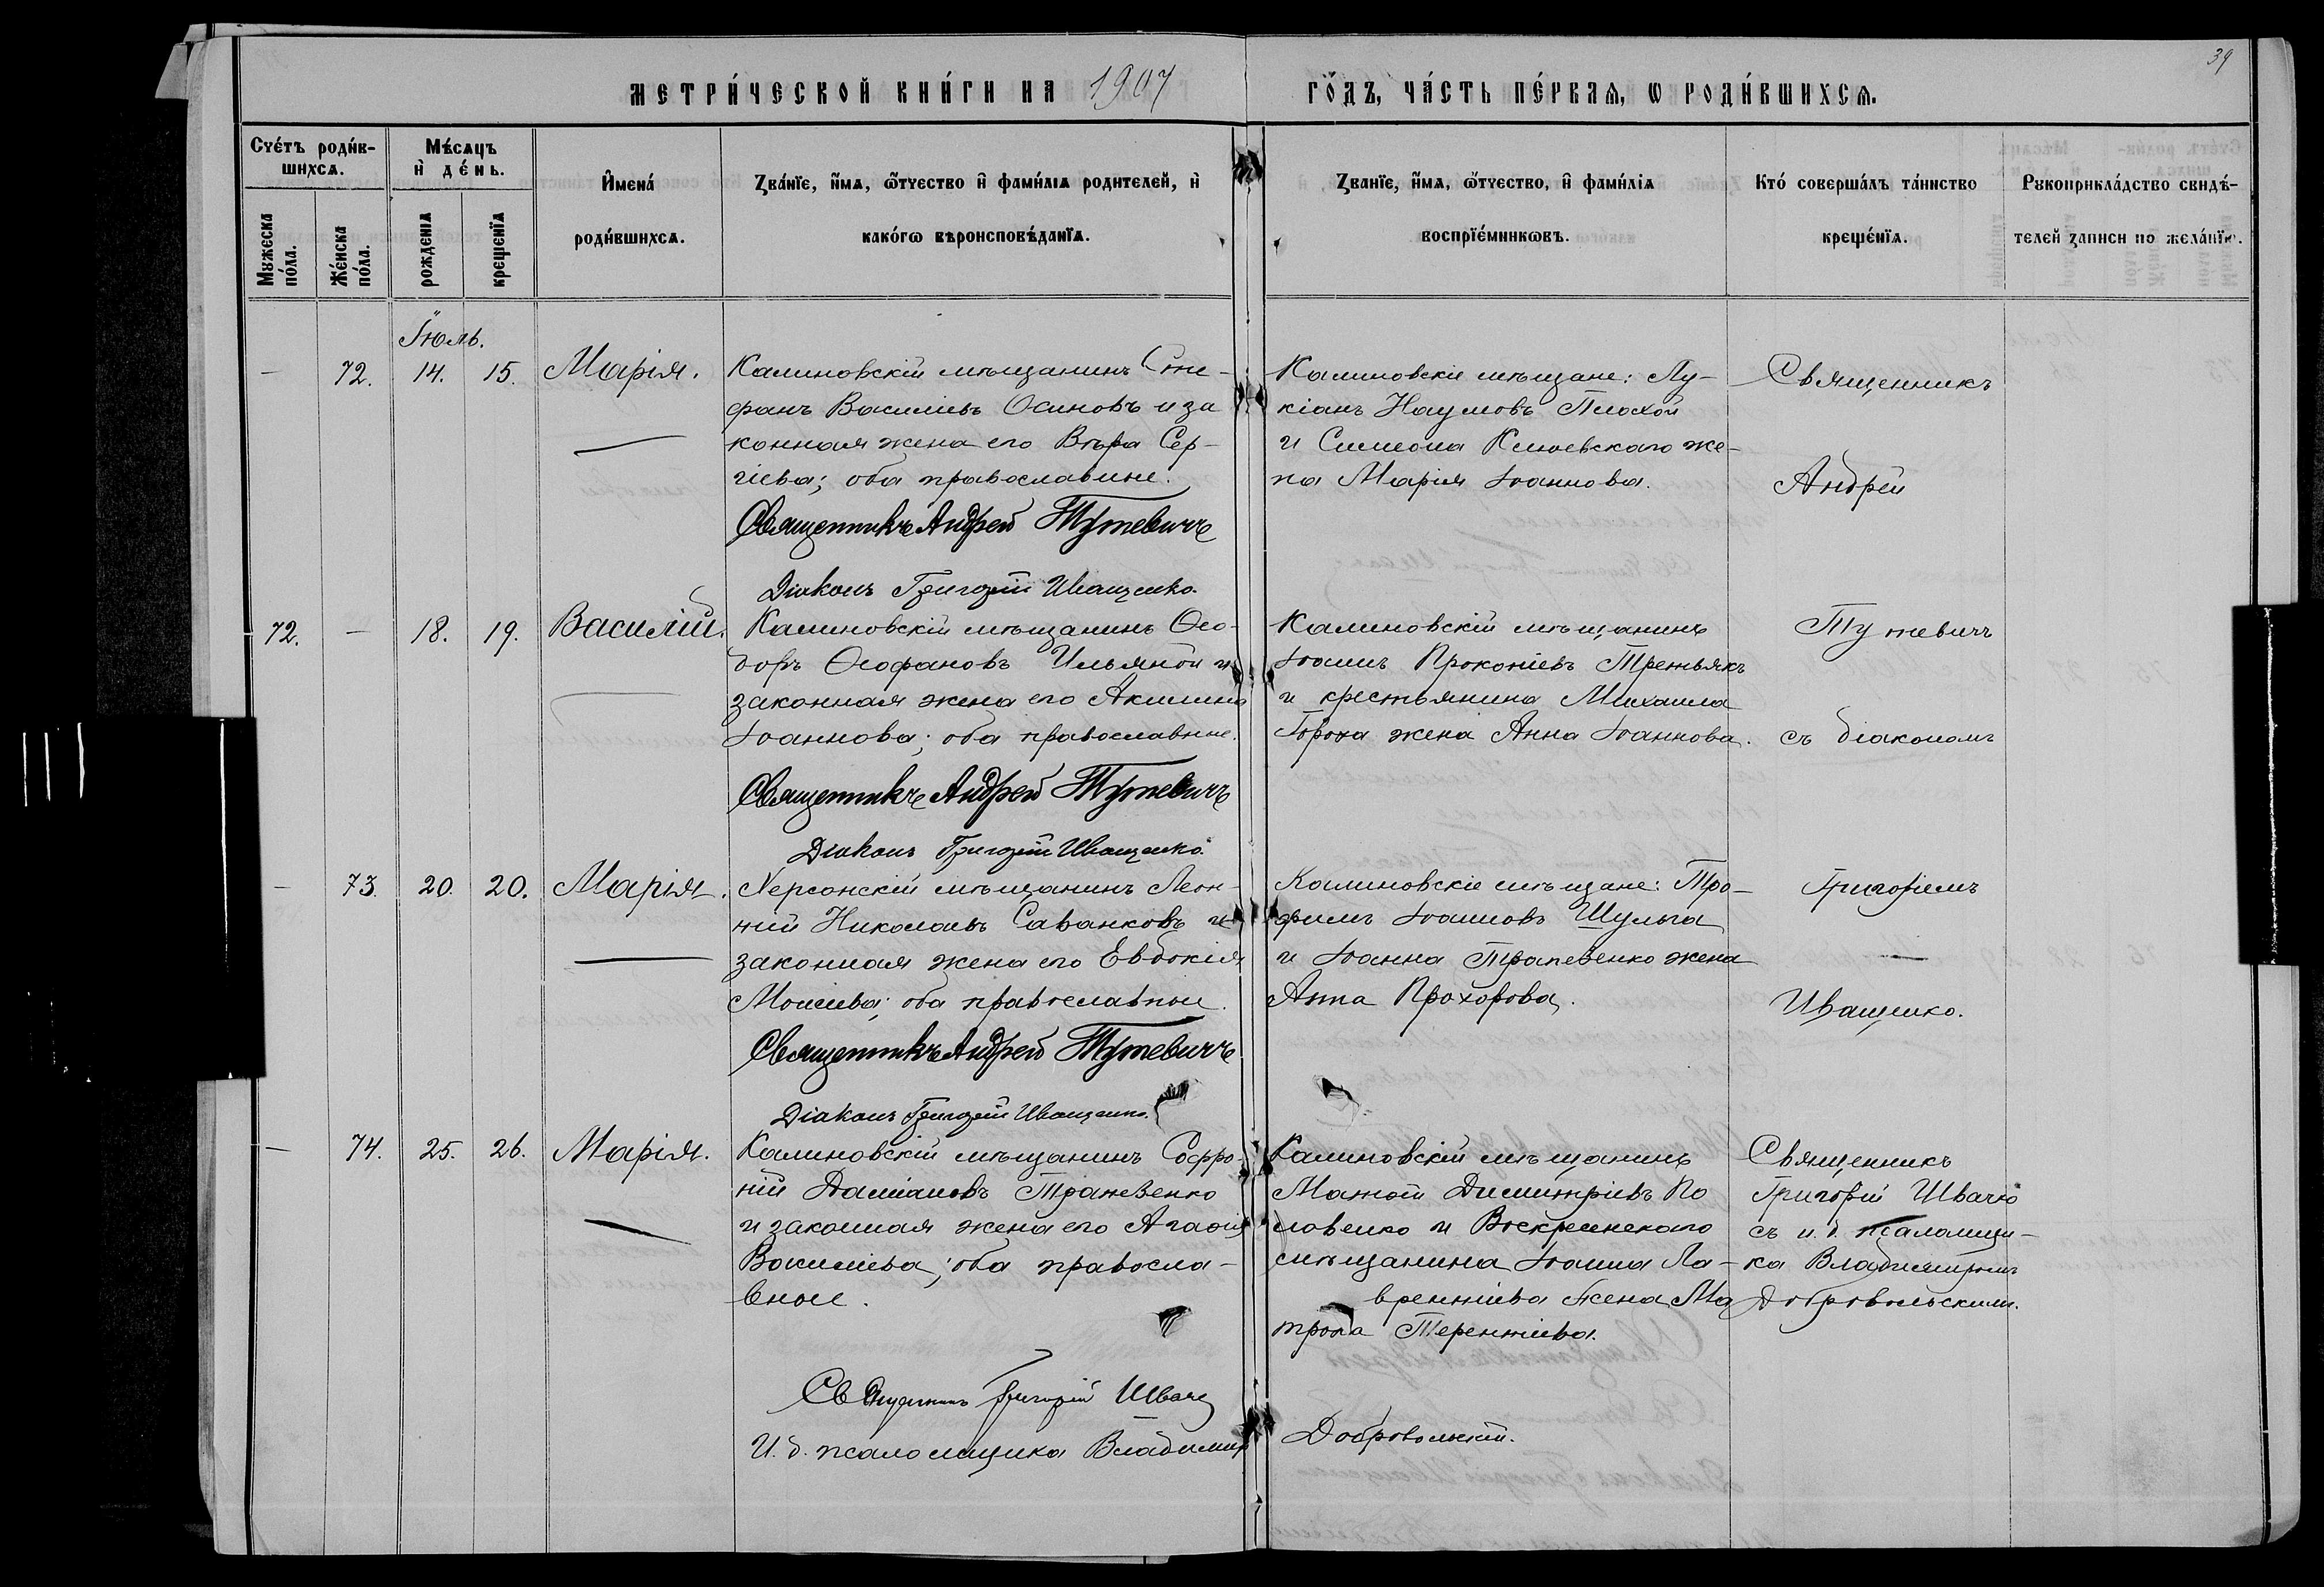 39
МЕТРИ́ЧЕСКОЙ КНИ́ГИ НА 1907 ГО́ДЪ, ЧА́СТЬ ПЕ́РВАѦ, Ѡ РОДИ́ВШИХСѦ.
Сче́тъ роди́в-
шихсѧ.
Мꙋжеска
по́ла.
Же́нска
по́ла.
Мѣ́сѧцъ
и҆ де́нь.
рожденїѧ
крещенїѧ
И҆мена́
роди́вшихсѧ.
Зва́нїе, и҆́мѧ, ѻ҆́тчество и҆ фами́лїѧ родителей, и҆
како́гѡ вѣроисповѣ́данїѧ.
Званїе, и҆́мѧ, ѻ҆́тчество, и҆ фами́лїѧ
воспрїе́мникѡвъ.
Кто́ соверша́лъ та́инство
креще́нїѧ.
Рꙋкоприкла́дство свидѣ́-
телей записи по жела́нїю.
Іюль.
— 72. 14. 15. Марія.
Калиновскій мѣщанинъ Сте-
фанъ Василіевъ Осиповъ и за
конная жена его Вѣра Сер-
гіева; оба православные.
Священникъ Андрей Тутевичъ
Діаконъ Григорій Иващенко.
Калиновскіе мѣщане: Лу-
кіанъ Наумовъ Плохой
и Симеона Клюевскаго же-
на Марія Іоаннова.
Священникъ
Андрей
72. — 18. 19. Василій.
Калиновскій мѣщанинъ Ѳео-
доръ Ѳеофановъ Ильяной и
законная жена его Акилина
Іоаннова; оба православные.
Священникъ Андрей Тутевичъ
Діаконъ Григорій Иващенко.
Калиновскій мѣщанинъ
Іоаннъ Прокопіевъ Третьякъ
и крестьянина Михаила
Гороха жена Анна Іоаннова.
Тутевичъ
съ діакономъ
— 73. 20. 20. Марія.
Херсонскій мѣщанинъ Леон-
тій Николаевъ Саванковъ и
законная жена его Евдокія
Моисеева; оба православные.
Священникъ Андрей Тутевичъ
Діаконъ Григорій Иващенко.
Калиновскіе мѣщане: Тро-
фимъ Іоанновъ Шульга
и Іоанна Трапезенко жена
Анна Прохорова.
Григоріемъ
Иващенко.
— 74. 25. 26. Марія.
Калиновскій мѣщанинъ Софро-
ній Даміановъ
и законная жена его Агаѳія
Василіева; оба правосла-
вные.
Священникъ Григорій Швачко
И. д. псаломщика Владиміръ Добровольскій.
Калиновскій мѣщанинъ
Матѳей Димитріевъ По
ловенко и Воскресенскаго
мѣщанина Іоанна Ла-
врентіева жена Ма
трона Терентіева.
Священникъ
Григорій Швачко
съ и. д. псаломщи-
ка Владиміромъ
Добровольскимъ.